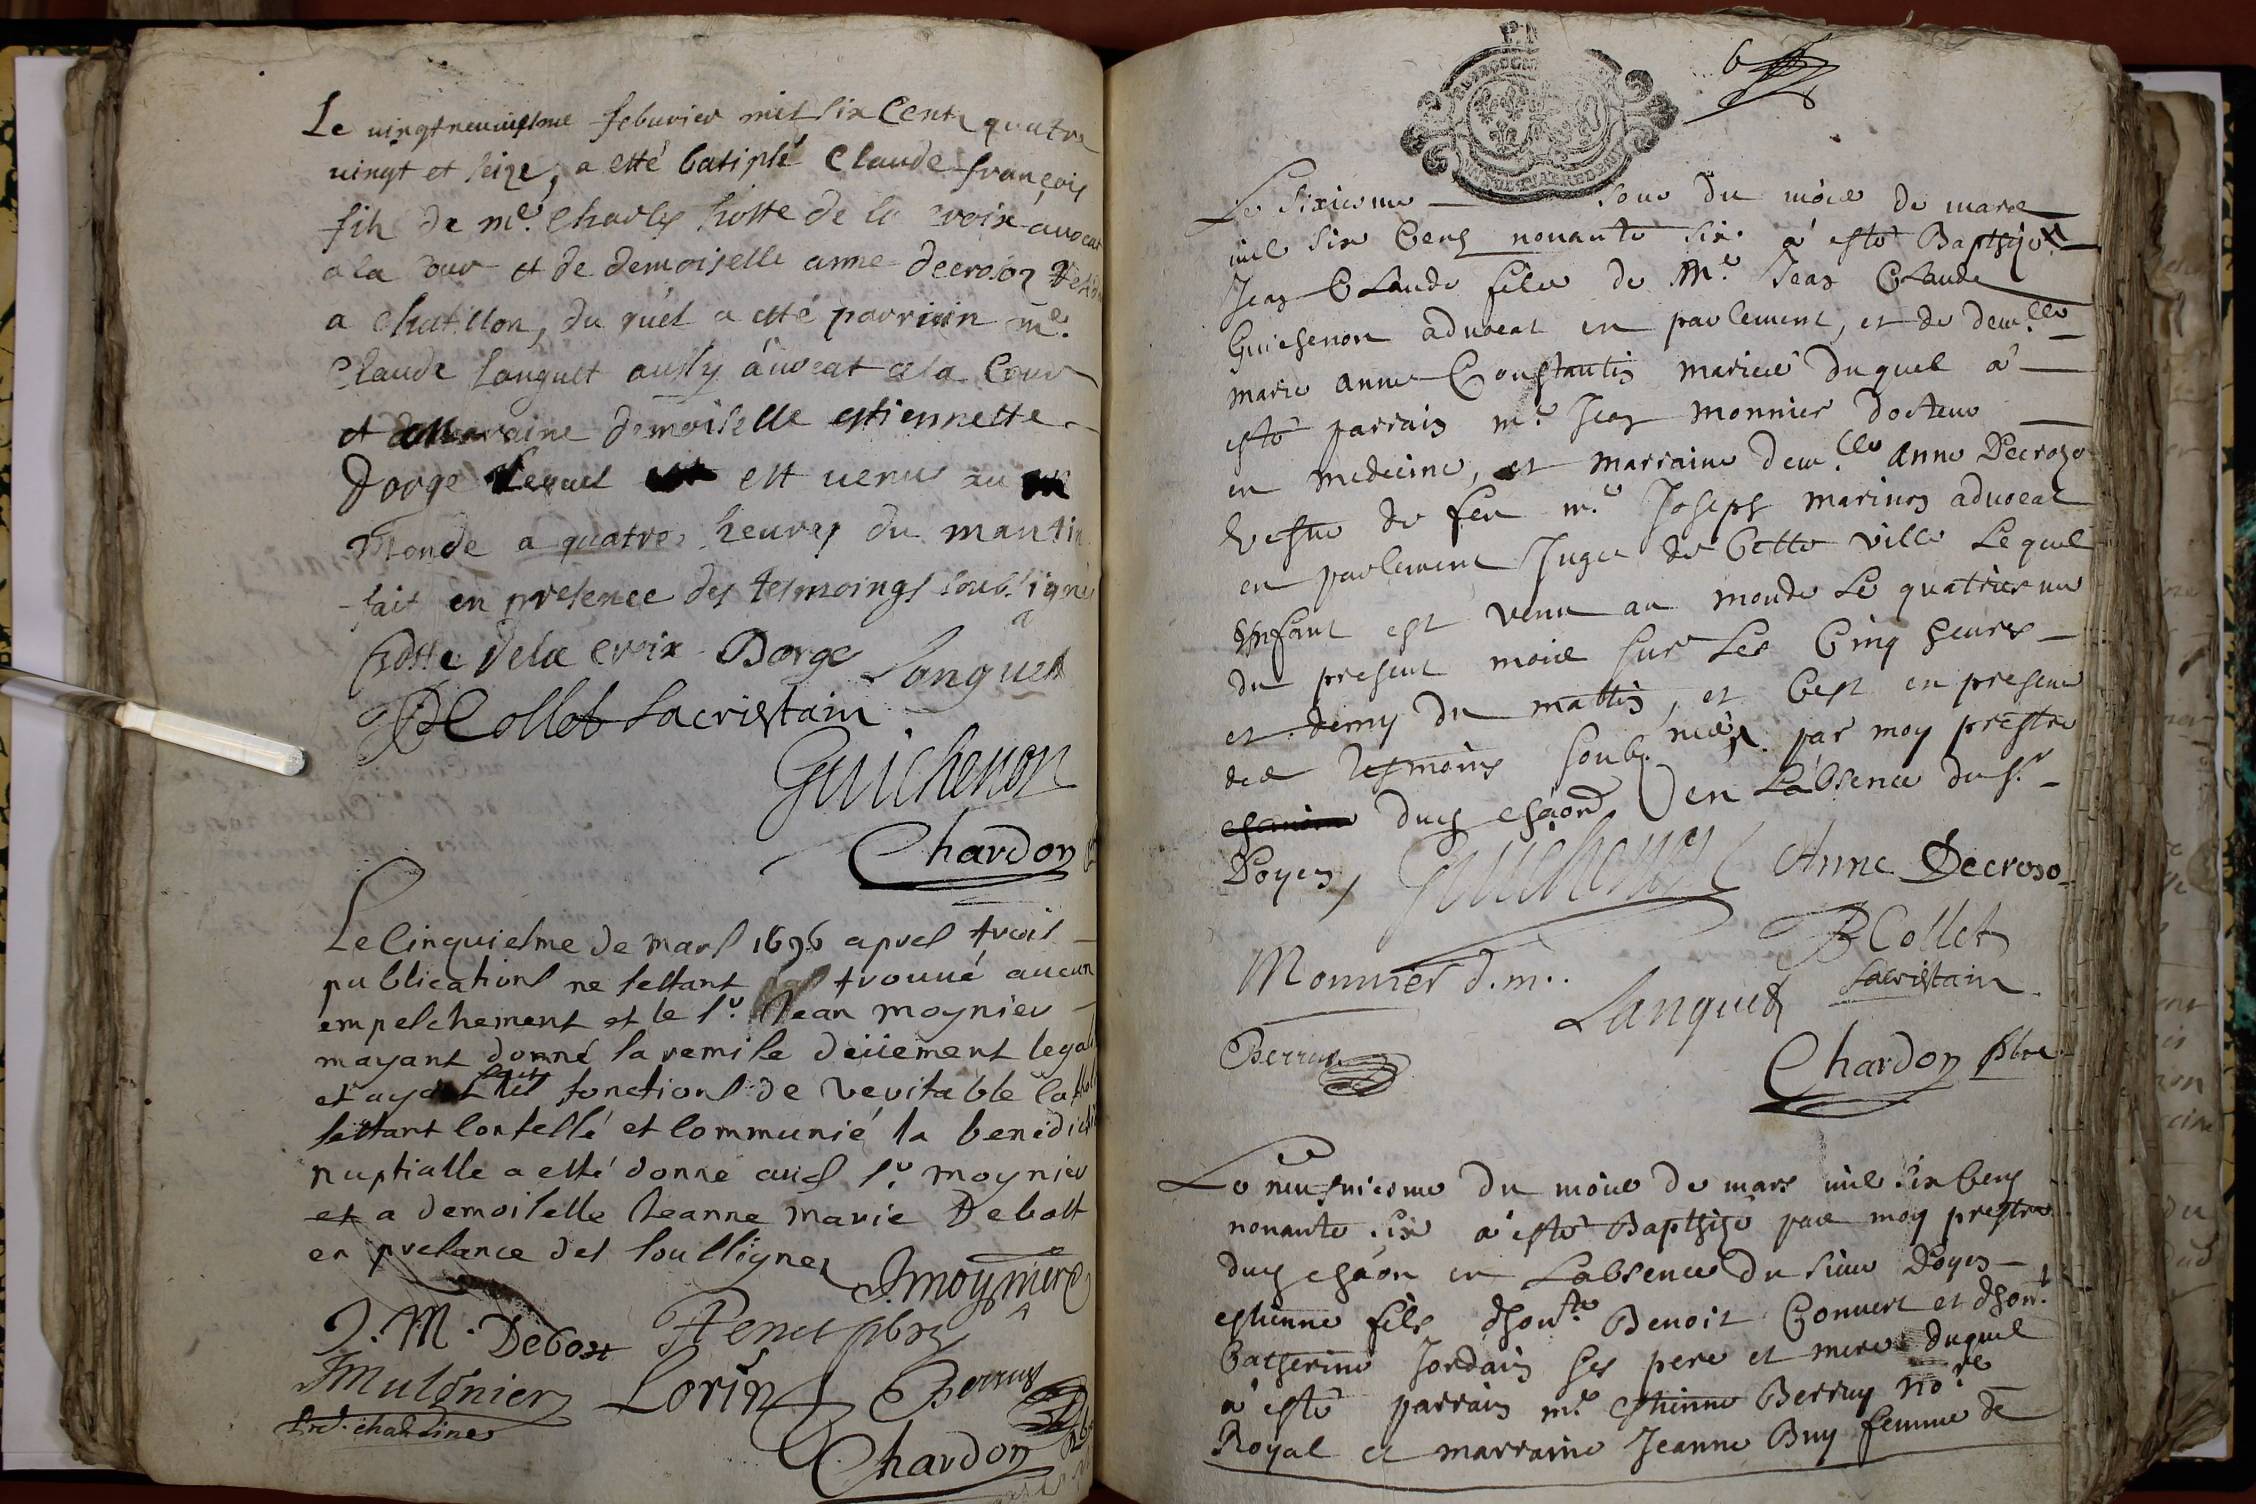 Le vingtneuviesme feburier mil six Centz quatre
vingt et seize, a esté batiplé Claude françois
fils de me. Charles hoste de la croix avocat
a la Cour et de demoiselle anne decroso
a chatillon, du quel a esté parrin me.
Claude Languet aussy avocat a la Cour
et marraine demoiselle estiennette
Dorge Lequel est venus au
Monde a quatre heures du mantin
fait en presence des tesmoings soubsignés
hoste dela croix Borge Languet
B Collet sacristain
Guichenon
Chardon
Le cinquiesme de mars 1696 apres trois
publications ne sestant trouvé aucun
empeschement et le sr. Jean moynier
mayant donné la remise deuement legal
et ayant fait fonctions de veritable
sestant confessé et communié la benedicti
nuptialle a esté donné aud sr. moynier
et a demoiselle Jeanne marie Debost
en presance des soussignez
J moynier
J. M. Debost
Lorin Berruy
Chardon
6
Le sixiesme Jour du mois de mars
mil six Cens nonante six a esté Baptisé
Jean Claude fils de Me. Jean Claude
Guichenon advocat en parlement, et de demlle
marie anne Constantin mariés duquel a
esté parrain me. Jean monnier docteur
en medecine, et marraine demlle anne Decroso
vefue de feu me. Joseph marinon advocat
en parlement Juge de Cette ville Lequel
Enfant est venu au monde Le quatriesme
du present mois sur Les Cinq heures
et demy du mattin, et C'est en presence
des tesmoins soubsnés par moy prestre
dud chaon en L'absence du sr
Doyen, Guichenon Anne Decroso
B Collet
Monnier d.m.
Languet sacristain
Berruy
Chardon pbre
Le neufuiesme du mois de mars mil six Cens
nonante six a esté Baptisé par moy prestre
dud chaon en L'absence du sieur Doyen
estienne fils dhonste Benoit Convert et dhonte
Catherine Jordain ses pere et mere duquel
a esté parrain me. estienne Berruy nore
Royal et marraine Jeanne Buy femme de